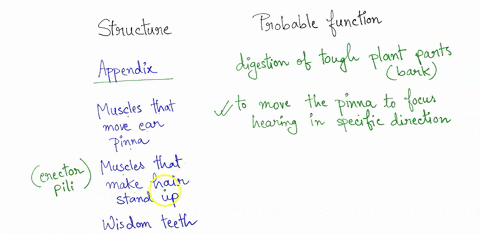 Structure
Probable function
Appendix
digestion of tough plant parts
(bark)
Muscles that
move ear
pinna
to move the pinna to focus
hearing in specific direction
(erector
pili)
Muscles that
make hair
stand up
Wisdom teeth